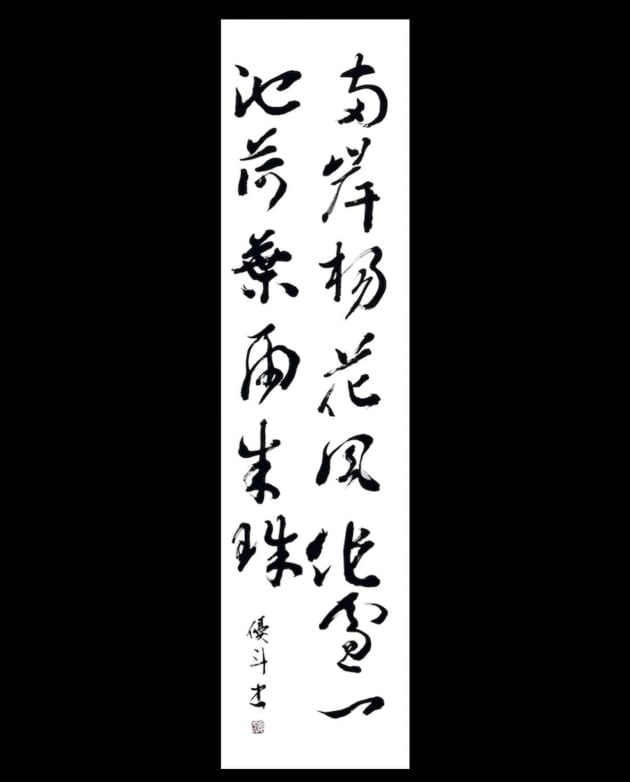 両岸楊花風作雪一
池荷葉雨成珠
優斗書